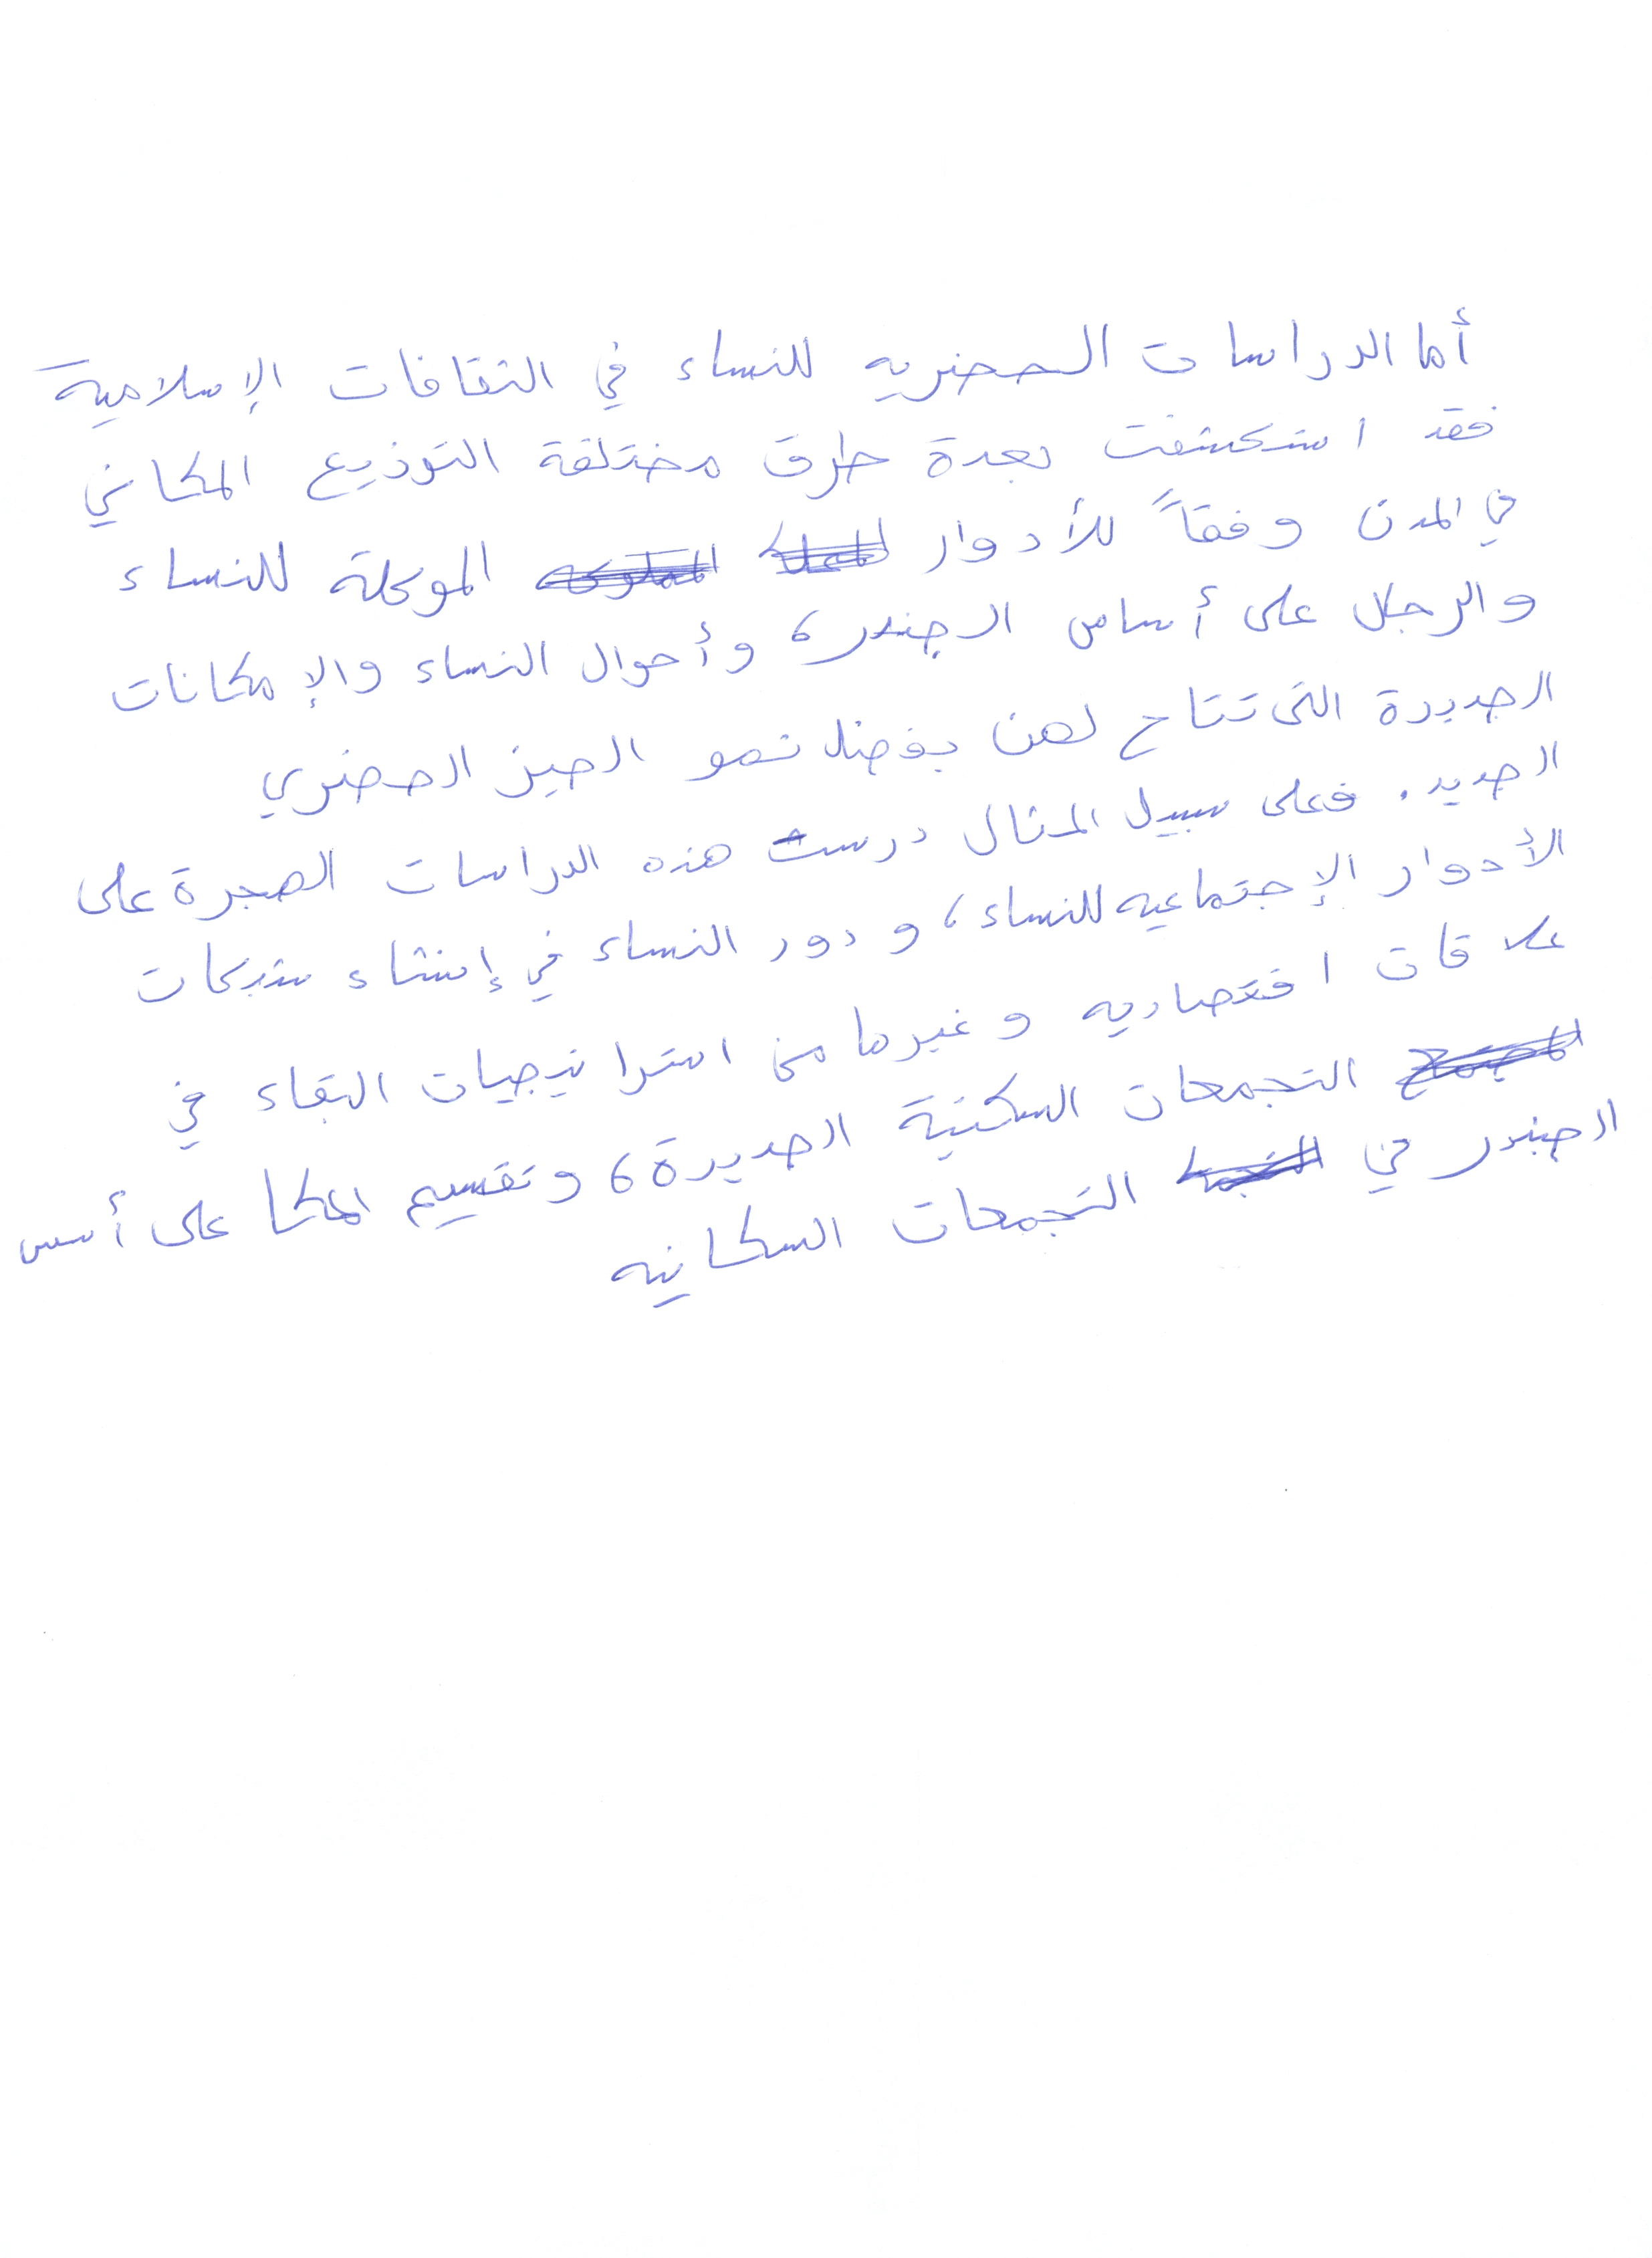 أما الدراسات الحضريه للنساء في الثقافات الإسلامية
فقد استكشفت بعدة طرق مختلفة التوزيع المكاني
في المدن وفقاً للأدوار الموكلة للنساء
والرجال على أساس الجندر، وأحوال النساء والإمكانات
الجديدة التى تتاح لهن بفضل نمو الحيز الحضري
الجديد. فعلى سبيل المثال درست هذه الدراسات الهجرة على
الأدوار الإجتماعيه للنساء، ودور النساء في إنشاء شبكات
علاقات اقتصاديه وغيرها من استراتيجيات البقاء في
التجمعات السكنية الجديدة، وتقسيم على أسس
الجندر في التجمعات السكانيه